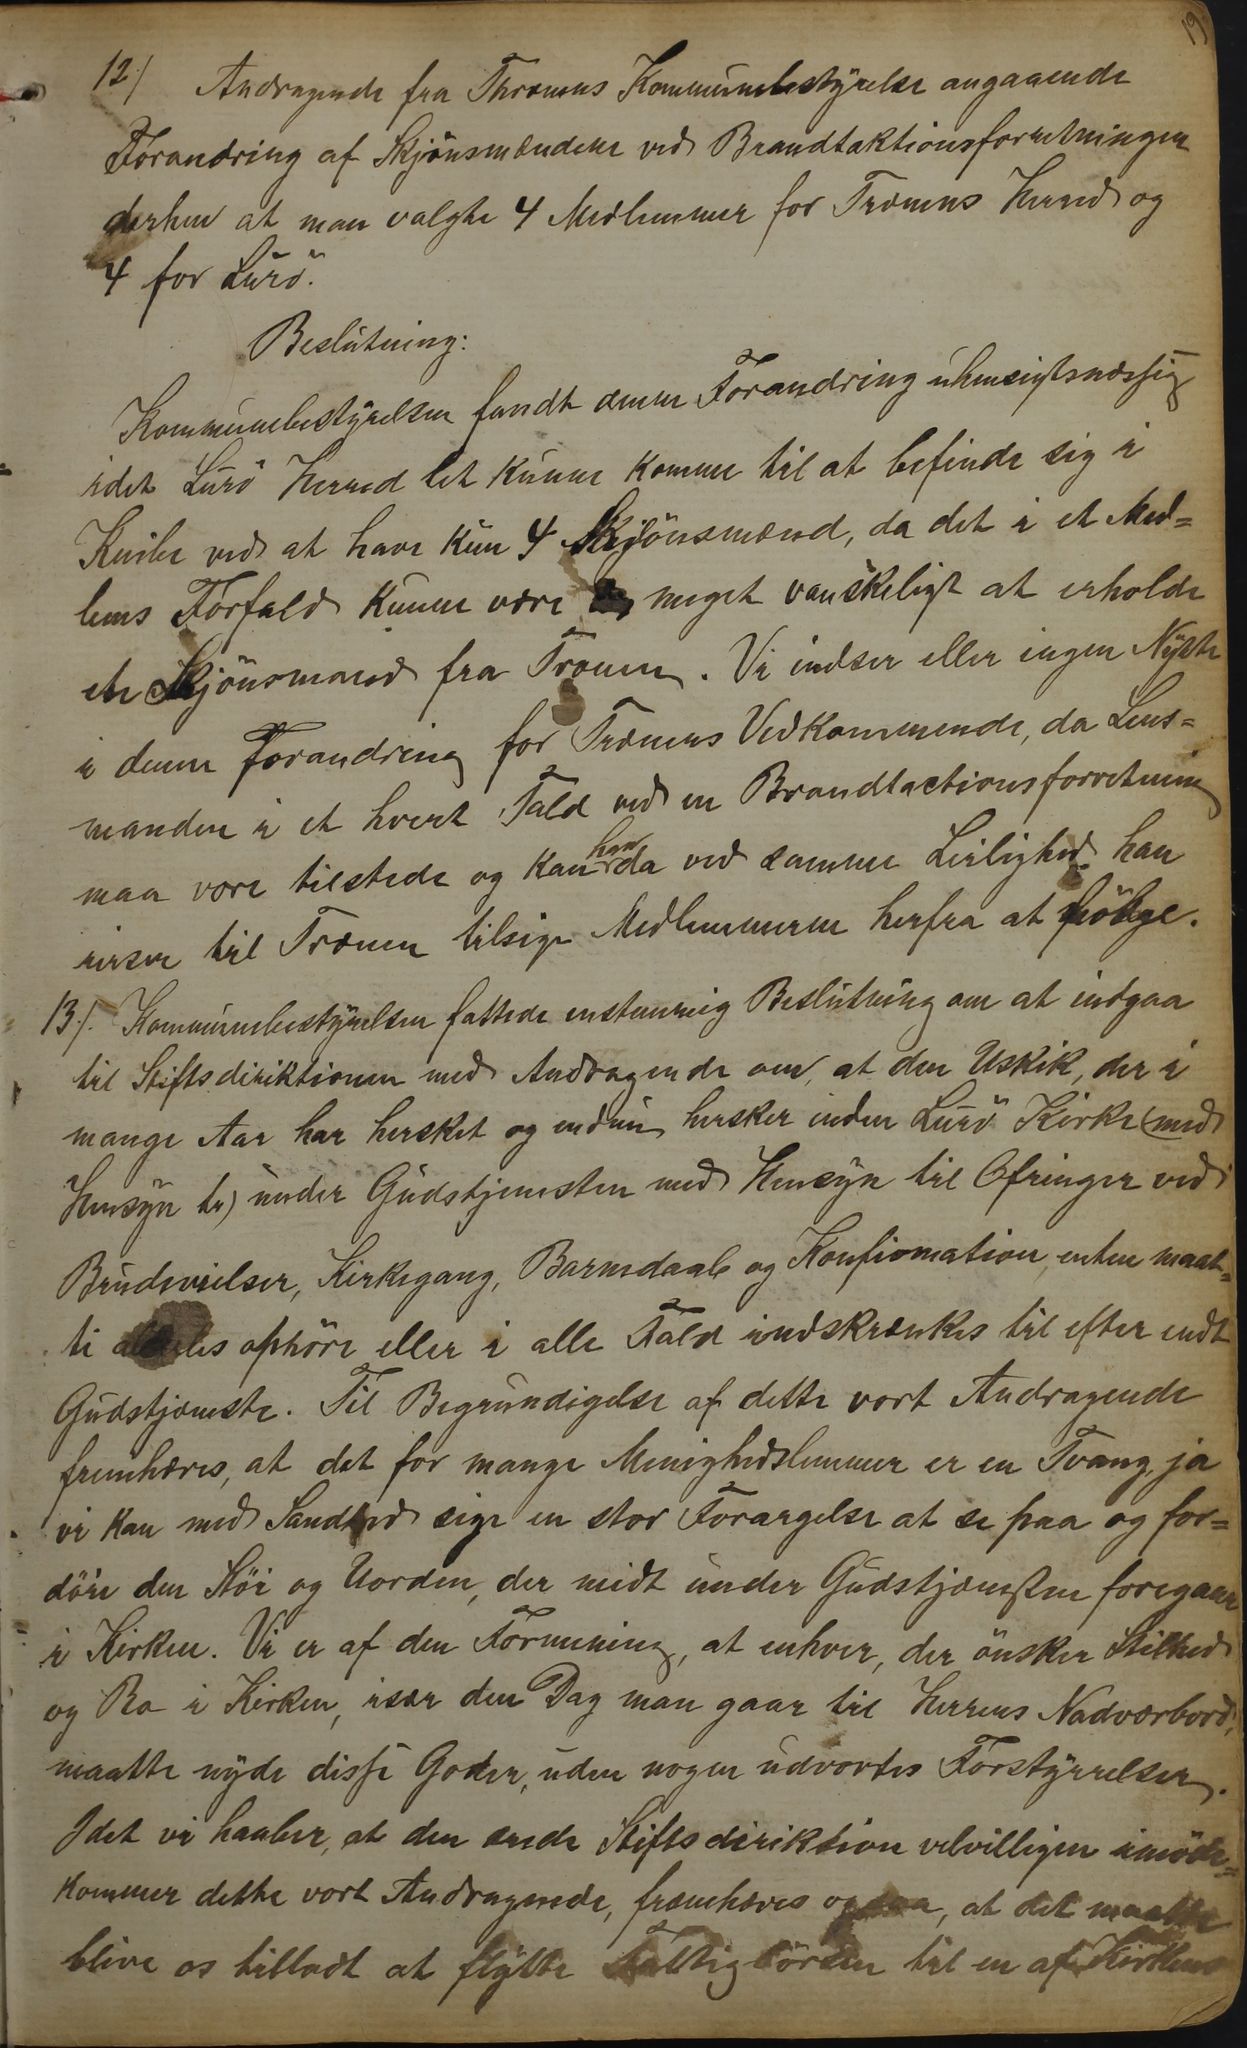 19
12./ Andragende fra Thrænens Kommunebestÿrelse angaaende
Forandring af Skjönsmændene ved Brandtaktionsforretningen
derhen at man valgte 4 Medlemmer for Trænens Herred og
4 for Lurö.
Beslutning:
Kommunebestÿrelsen fandt denne Forandring uhensigtsmæssig
idet Lurö Herred let kunne komme til at befinde sig i
Knibe ved at have kun 4 Skjönsmænd, da det i et Med=
lems Forfald kunne være meget vanskeligt at erholde
en Skjönsmand fra Trænen. Vi indser eller ingen Nÿtte
i denne Forandring for Trænens Vedkommende, da Lens=
manden i et hvert Fald ved en Brandtactionsforretning
maa være tilstede og kan han da ved samme Leilighed han
reiser til Trænen tilsige Medlemmerne herfra at fölge.
13./. Kommunebestÿrelsen fattede enstemmig Beslutning om at indgaa
til Stiftsdirektionen med Andragende om, at den Uskik, der i
mange Aar har hersket og endnu hersker inden Lurö Kirke (med
Hensÿn til) under Gudstjenesten med Hensÿn til Ofringer ved
Brudevielser, Kirkegang, Barnedaab og Konfirmation, enten maat=
te aldeles ophöre eller i alle Fald indskrænkes til efter endt
Gudstjeneste. Til Begrundigelse af dette vort Andragende
fremhæves, at det for mange Menighedslemmer er en Tvang, ja
vi kan med Sandhed sige en stor Forargelse at se paa og for=
döie den Stöi og Uorden, der midt under Gudstjænesten foregaar
i Kirken. Vi er af den Formening, at enhver, der önsker Stilhed
og Ro i Kirken, især den Dag man gaar til Herrens Nadværbord,
maatte nÿde disse Goder, uden nogen udvortes Forstÿrrelser.
Idet vi haaber, at den ærede Stiftsdirektion velvilligen imöde=
kommer dette vort Andragende, fræmhæves ogsaa, at det maatte
blive os tilladt at flÿtte Fattigbörsen til en af Kirkens